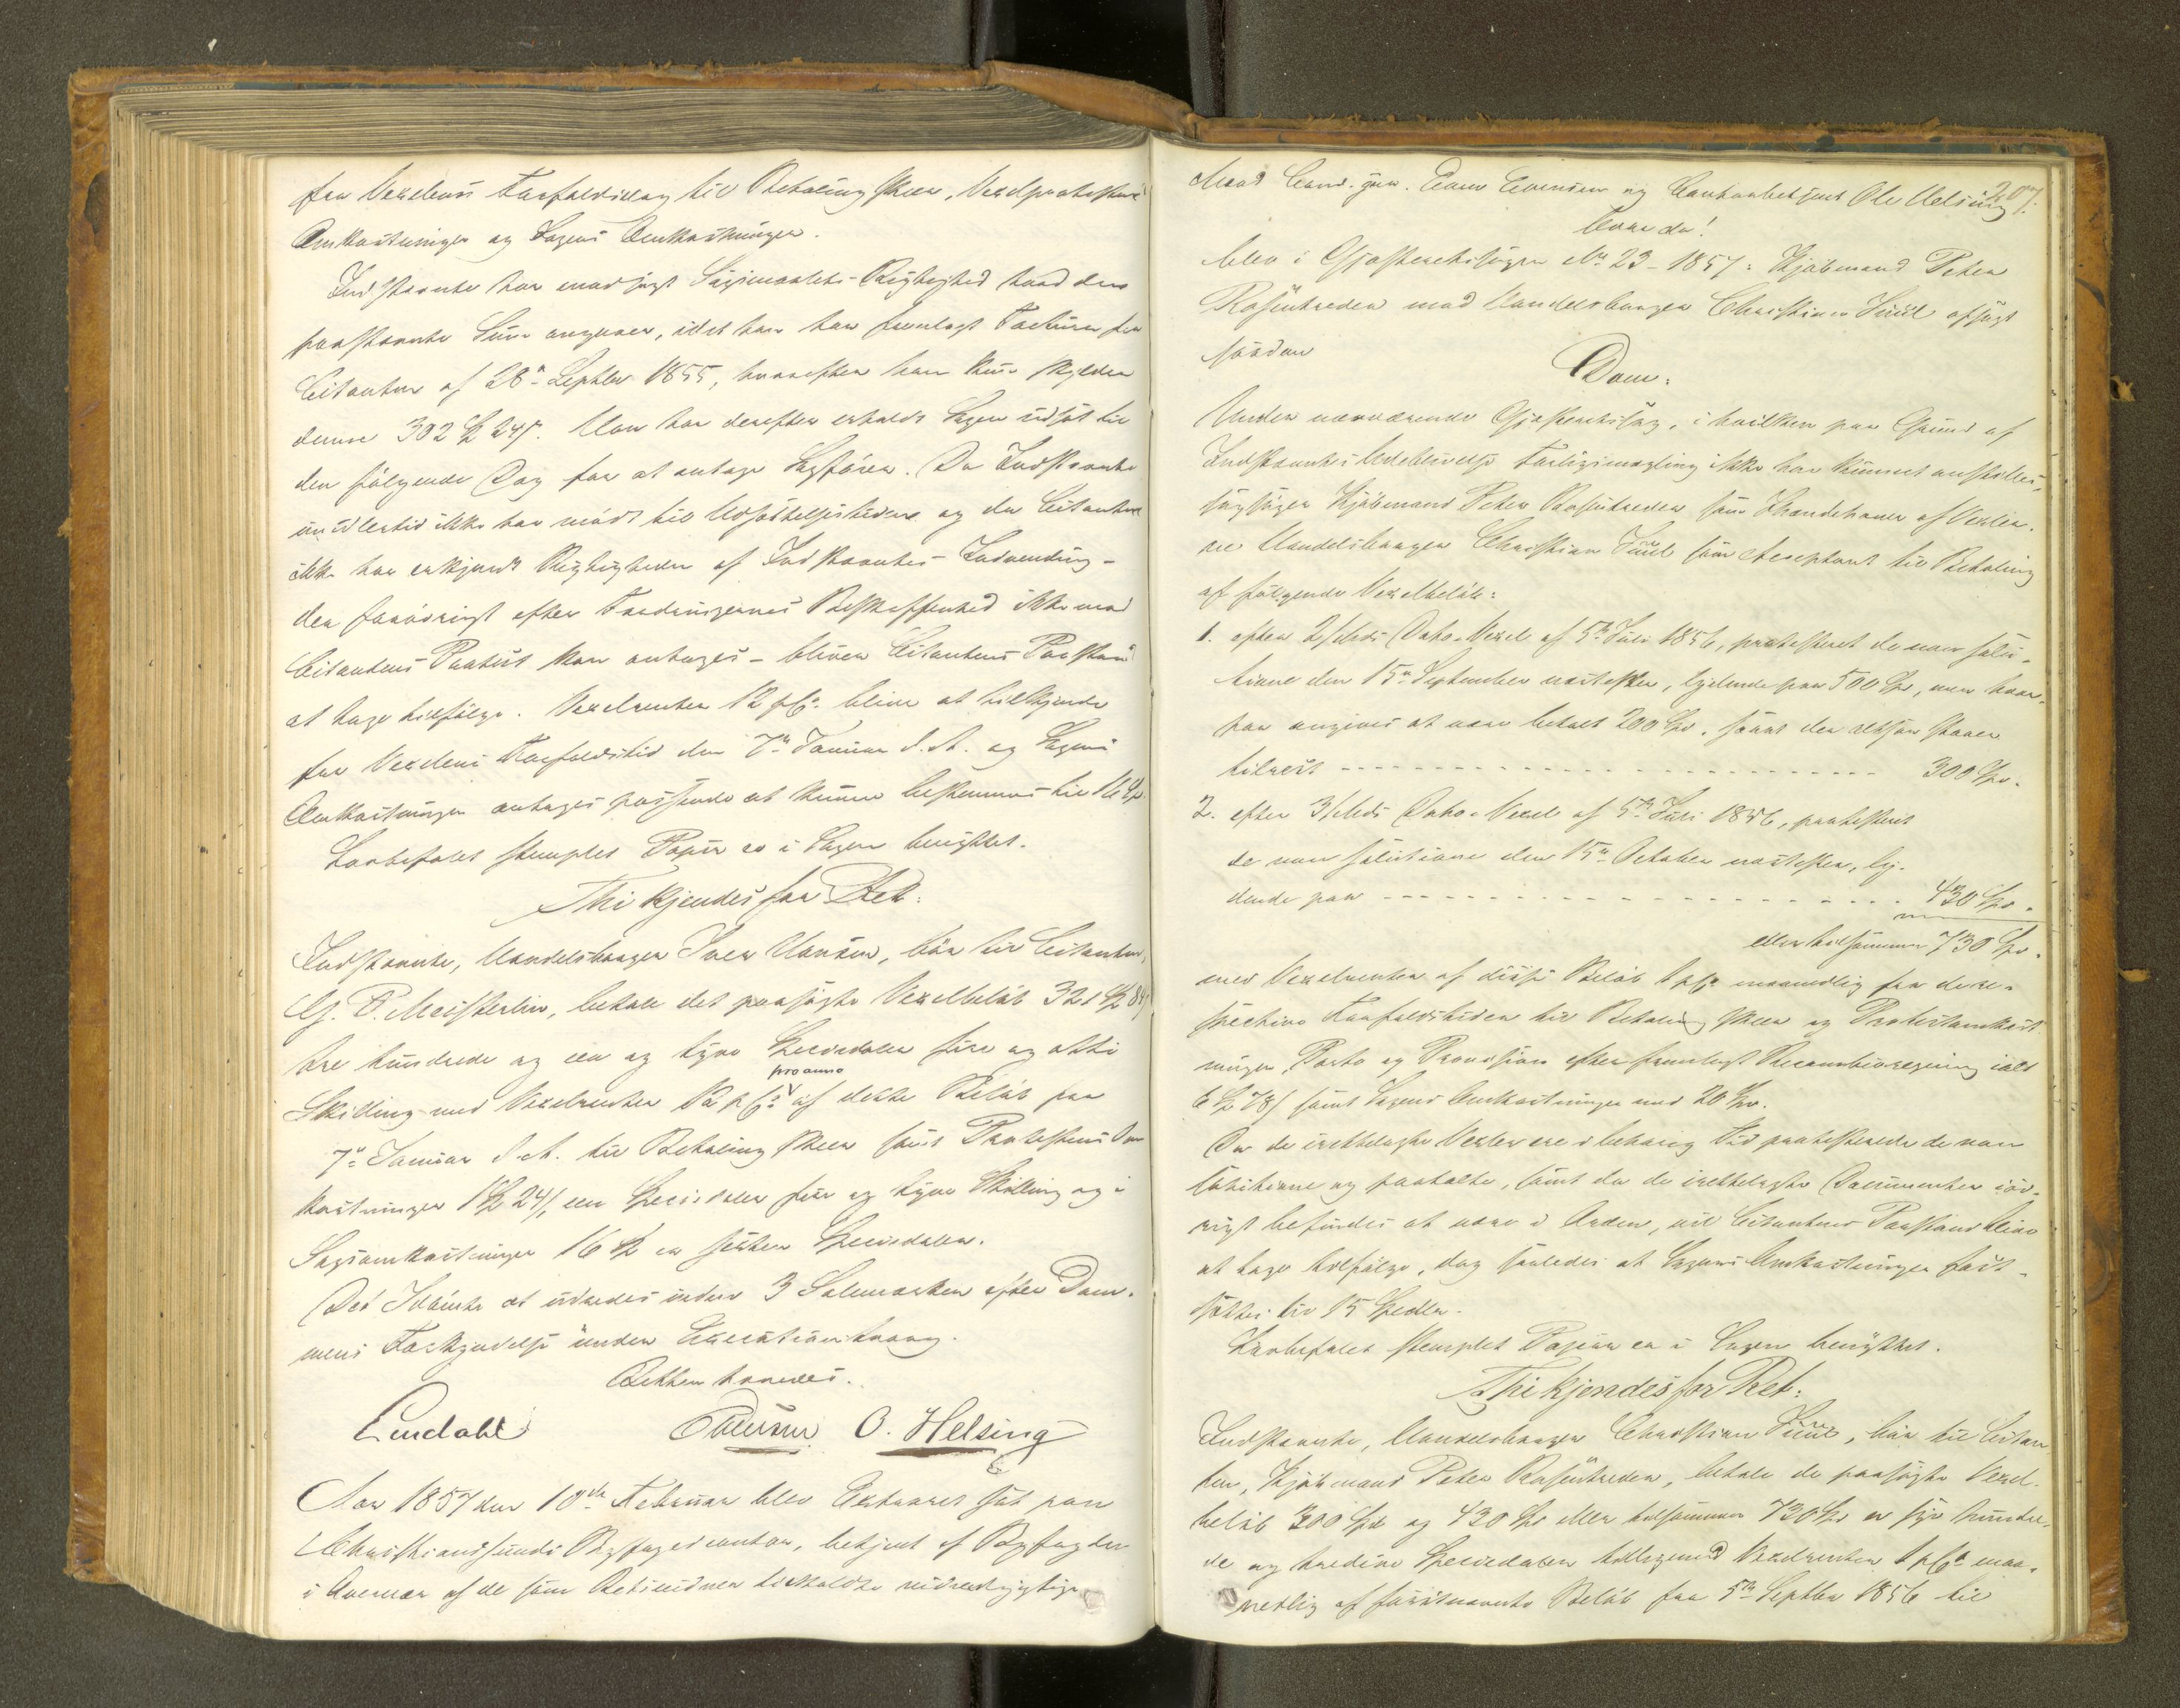 fra Vexelens Forfaldsdag til Betaling skeer, Vexelprotestens
Omkostninger og Sagens Omkostninger.
Indstævnte har modsagt Søgsmaalets Rigtighed hvad den
paastævnte Sum angaaer, idet han har fremlagt Factura fra
Citanten af 28de Septbr 1855, hvorefter han kun skylder
denne 302 Sp 24 s. Han har derefter erholdt Sagen udsat til
den følgende Dag for at antage Sagfører. Da Indstævnte
imidlertid ikke har mødt til Udsættelsestiden og da Citanten
ikke har erkjendt Rigtigheden af Indstævntes Indvending –
der forøvrigt efter Fordringernes Beskaffenhed ikke mod
Citantens Protest kan antages – bliver Citantens Paastand
at tage tilfølge. Vexelrenten 12 pC. bliver at tilkjende
fra Vexelens Forfaldstid den 7de Januar d. A. og Sagens
Omkostninger antages passende at kunne bestemmes til 16 Sp.
Lovbefalet stemplet Papir er i Sagen benyttet.
Thi kjendes for Ret:
Indstævnte, Handelsborger Iver Hansen, bør til Citanten,
G. P. Meisterlin, betale det paasøgte Vexelbeløb 321 Sp 84 s
tre hundrede og een og tyve Speciedaler fire og otti
Skilling med Vexelrenter 12 pC. pro anno af dette Beløb fra
7de Januar d. A. til Betaling skeer samt Protestens Om
kostninger 1 Sp 24 s, een Speciedaler fire og tyve Skilling og i
Sagsomkostninger 16 Sp er sexten Speciedaler.
Det Idømte at udredes inden 3 Solemærker efter Dom-
mens Forkyndelse under Executionstvang.
Retten hævedes.
Lindahl O. Helsing
Aar 1857 den 10de Februar blev Extraret sat paa
Christianssunds Byfogedcontor, betjent af Byfogden
i Overvær af de som Retsvidner tilkaldte vidnesdygtige
207.
Mænd Cand. jur. Even Evensen og Contorbetjent Ole Helsing
Hvor da!
blev i Gjæsteretssagen No 23 – 1857: Kjøbmand Peter
Rosentreder mod Handelsborger Christian Juul afsagt
saadan
Dom:
Under nærværende Gjæsteretssag, i hvilken paa Grund af
Indstævntes Udeblivelse Forligsmægling ikke har kunnet anstilles,
sagsøger Kjøbmand Peter Rosentreder som Ihændehaver af Vexler-
ne Handelsborger Christian Juul som Acceptant til Betaling
af følgende Vexelbeløb:
1. efter 2 Mds Dato-Vexel af 5te Juli 1856, protesteret de non solu-
tione den 15de September næstefter, lydende paa 500 Spd, men hvor-
paa angives at være betalt 200 Spd. samt der altsaa staaer
tilrest - - - - - - - - - - - - - 300 Spd.
2. efter 3 Mds Dato-Vexel af 5te Juli 1856, protesteret
de non solutione den 15de October næstefter, ly-
dende paa - - - - - - - - - - - - - 430 Spd.
eller tilsammen 730 Spd.
med Vexelrenter af disse Beløb 1 pC. maanedlig fra de re-
spective Forfaldstider til Betaling skeer og Protestomkost
ninger, Porto og Provision efter fremlagt Recambioregning ialt
6 Sp 78 s samt Sagens Omkostninger med 20 Spd.
Da de irettelagte Vexler ere i behørig Tid protesterede de non
solutione og samt da de irettelagte Documenter iøv-
rigt befindes at være i Orden, vil Citantens Paastand blive
at tage tilfølge, dog saaledes at Sagens Omkostninger fast-
sættes til 15 Spdlr.
Lovbefalet stemplet Papir er i Sagen benyttet.
Thi kjendes for Ret:
Indstævnte, Handelsborger Christian Juul, bør til Citan
ten, Kjøbmand Peter Rosentreder, betale de paasøgte Vexel-
beløb 300 Spd og 430 Spd eller tilsammen 730 Spd er syv hundre-
de og tredive Speciedaler tilligemed Vexelrenter 1 pC. maa-
nedlig af førstnævnte Beløb fra 5te Septbr 1856 til